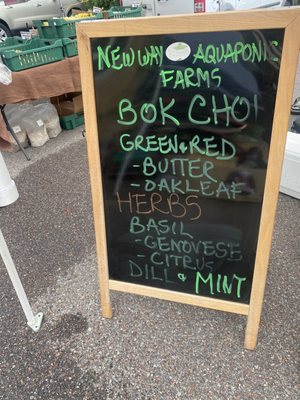 NEW WAY AQUAPONIC
FARMS
BOK CHOI
GREEN & RED
- BUTTER
- OAKLEAF
HERBS
BASIL
- GENOVESE
- CITRUS
DILL & MINT